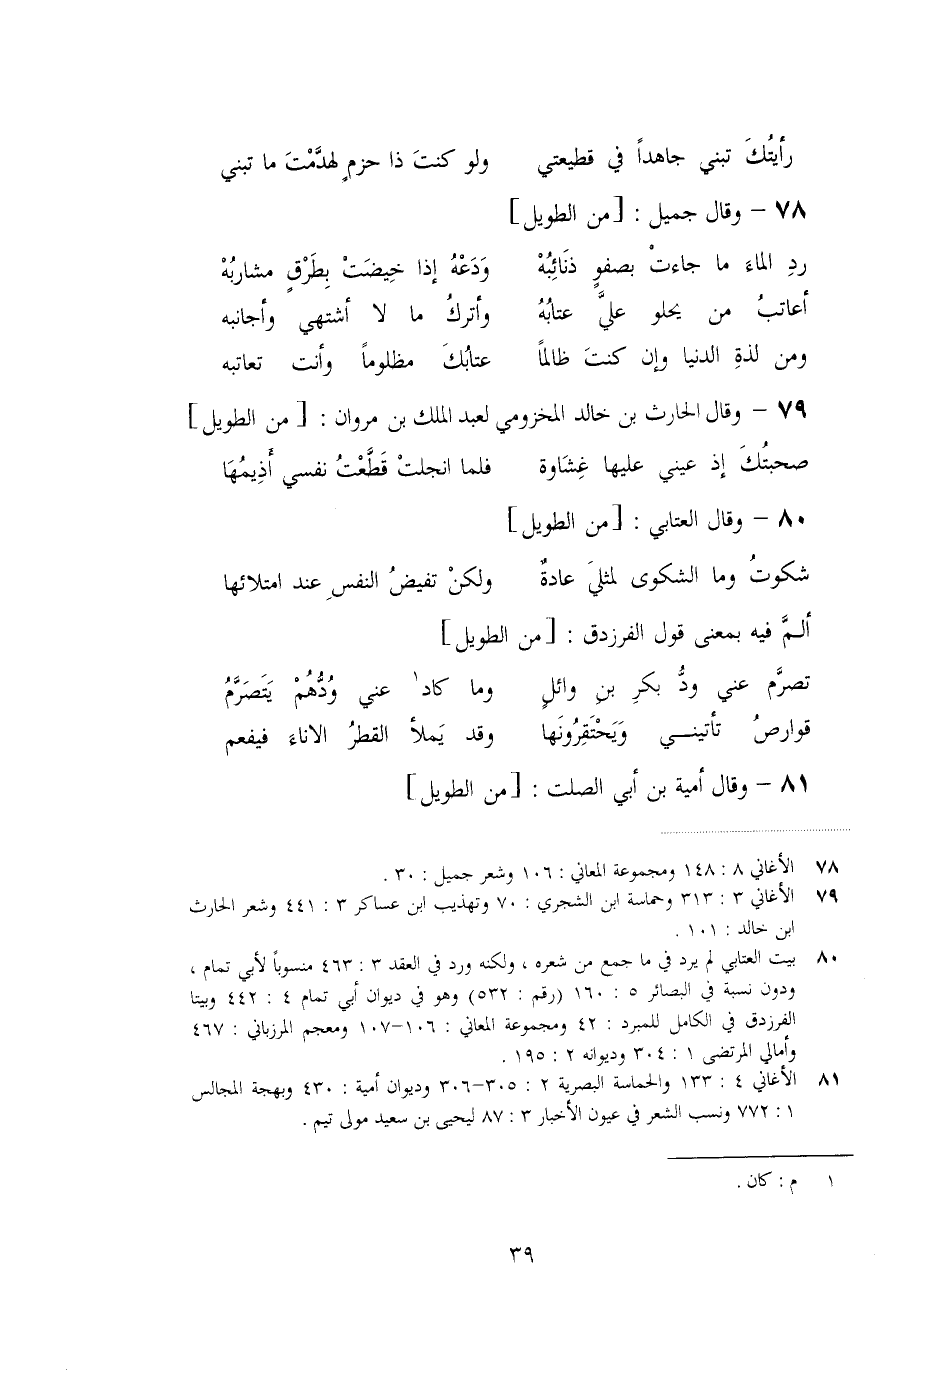 رأيتُكَ تبني جاهداً في قطيعتي ولو كنتَ ذا حزمٍ لهدَّمْتَ ما تبني
٧٨ – وقال جميل : [ من الطويل ]
ردِ الماءَ ما جاءتْ بصفوٍ ذنَائِبُهْ وَدَعْهُ إذا خِيضَتْ بِطَرْقٍ مشاربُهْ
أعاتبُ من يحلو عليَّ عتابُهُ وأتركُ ما لا أشتهي وأجانبه
ومن لذةِ الدنيا وإن كنتَ ظالماً عتابُكَ مظلوماً وأنت تعاتبه
٧٩ – وقال الحارث بن خالد المخزومي لعبد الملك بن مروان : [ من الطويل ]
صحبتُكَ إذ عيني عليها غِشَاوة فلما انجلتْ قَطَّعْتُ نفسي أَذِيمُهَا
٨٠ – وقال العتابي : [ من الطويل ]
شكوتُ وما الشكوى لمثليَ عادةٌ ولكنْ تفيضُ النفسِ عند امتلائها
ألمَّ فيه بمعنى قول الفرزدق : [ من الطويل ]
تصرَّم عني ودُّ بكرِ بنِ وائلٍ وما كاد١ عني وُدُّهُمْ يَتَصَرَّمُ
قوارصُ تأتيني وَيَحْتَقِرُونَها وقد يَملأ القطرُ الاناءَ فيفعم
٨١ – وقال أمية بن أبي الصلت : [ من الطويل ]
٧٨ الأغاني ٨ : ١٤٨ ومجموعة المعاني : ١٠٦ وشعر جميل : ٣٠ .
٧٩ الأغاني ٣ : ٣١٣ وحماسة ابن الشجري : ٧٠ وتهذيب ابن عساكر ٣ : ٤٤١ وشعر الحارث
ابن خالد : ١٠١ .
٨٠ بيت العتابي لم يرد في ما جمع من شعره ، ولكنه ورد في العقد ٣ : ٤٦٣ منسوباً لأبي تمام ،
ودون نسبة في البصائر ٥ : ١٦٠ (رقم : ٥٣٢) وهو في ديوان أبي تمام ٤ : ٤٤٢ وبيتا
الفرزدق في الكامل للمبرد : ٤٢ ومجموعة المعاني : ١٠٦–١٠٧ ومعجم المرزباني : ٤٦٧
وأمالي المرتضى ١ : ٣٠٤ وديوانه ٢ : ١٩٥ .
٨١ الأغاني ٤ : ١٣٣ والحماسة البصرية ٢ : ٣٠٥–٣٠٦ وديوان أمية : ٤٣٠ وبهجة المجالس
١ : ٧٧٢ ونسب الشعر في عيون الأخبار ٣ : ٨٧ ليحيى بن سعيد مولى تيم .
١ م : كان .
٣٩